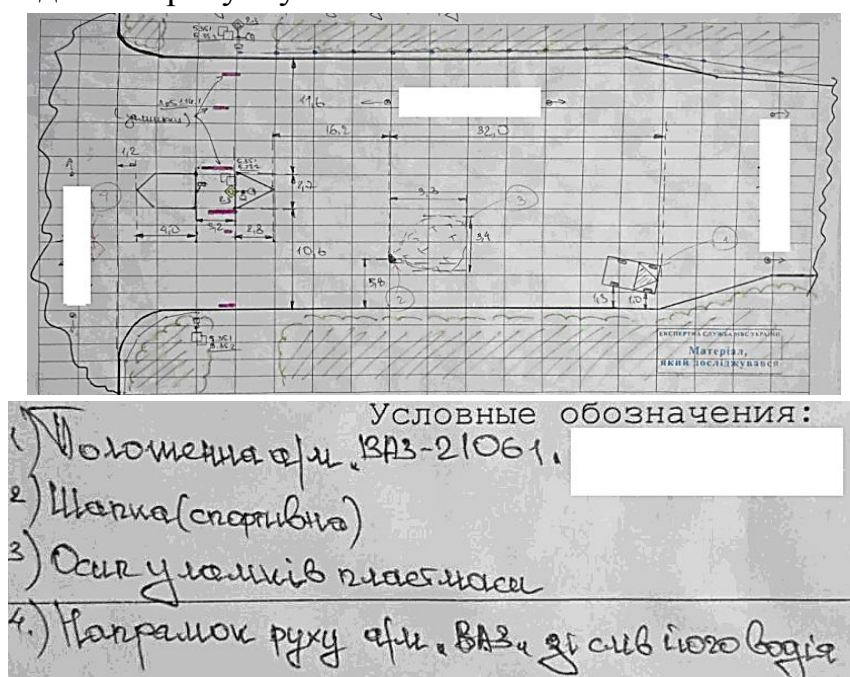 5.35.1
1,2
11,6
16,2
32,0
2,7
3,3
3
3,4
4,0
3,2
2,8
10,6
5,8
2
1
1,3
1,0
ЕКСПЕРТНА СЛУЖБА МВС УКРАЇНИ
Матеріал,
який досліджувався
Условные обозначения:
1) Положення а/м „ВАЗ-21061"
2) Шапка (спортивна)
3) Осип уламків пластмаси
4.) Напрамок руху а/м „ВАЗ" зі слів його водія